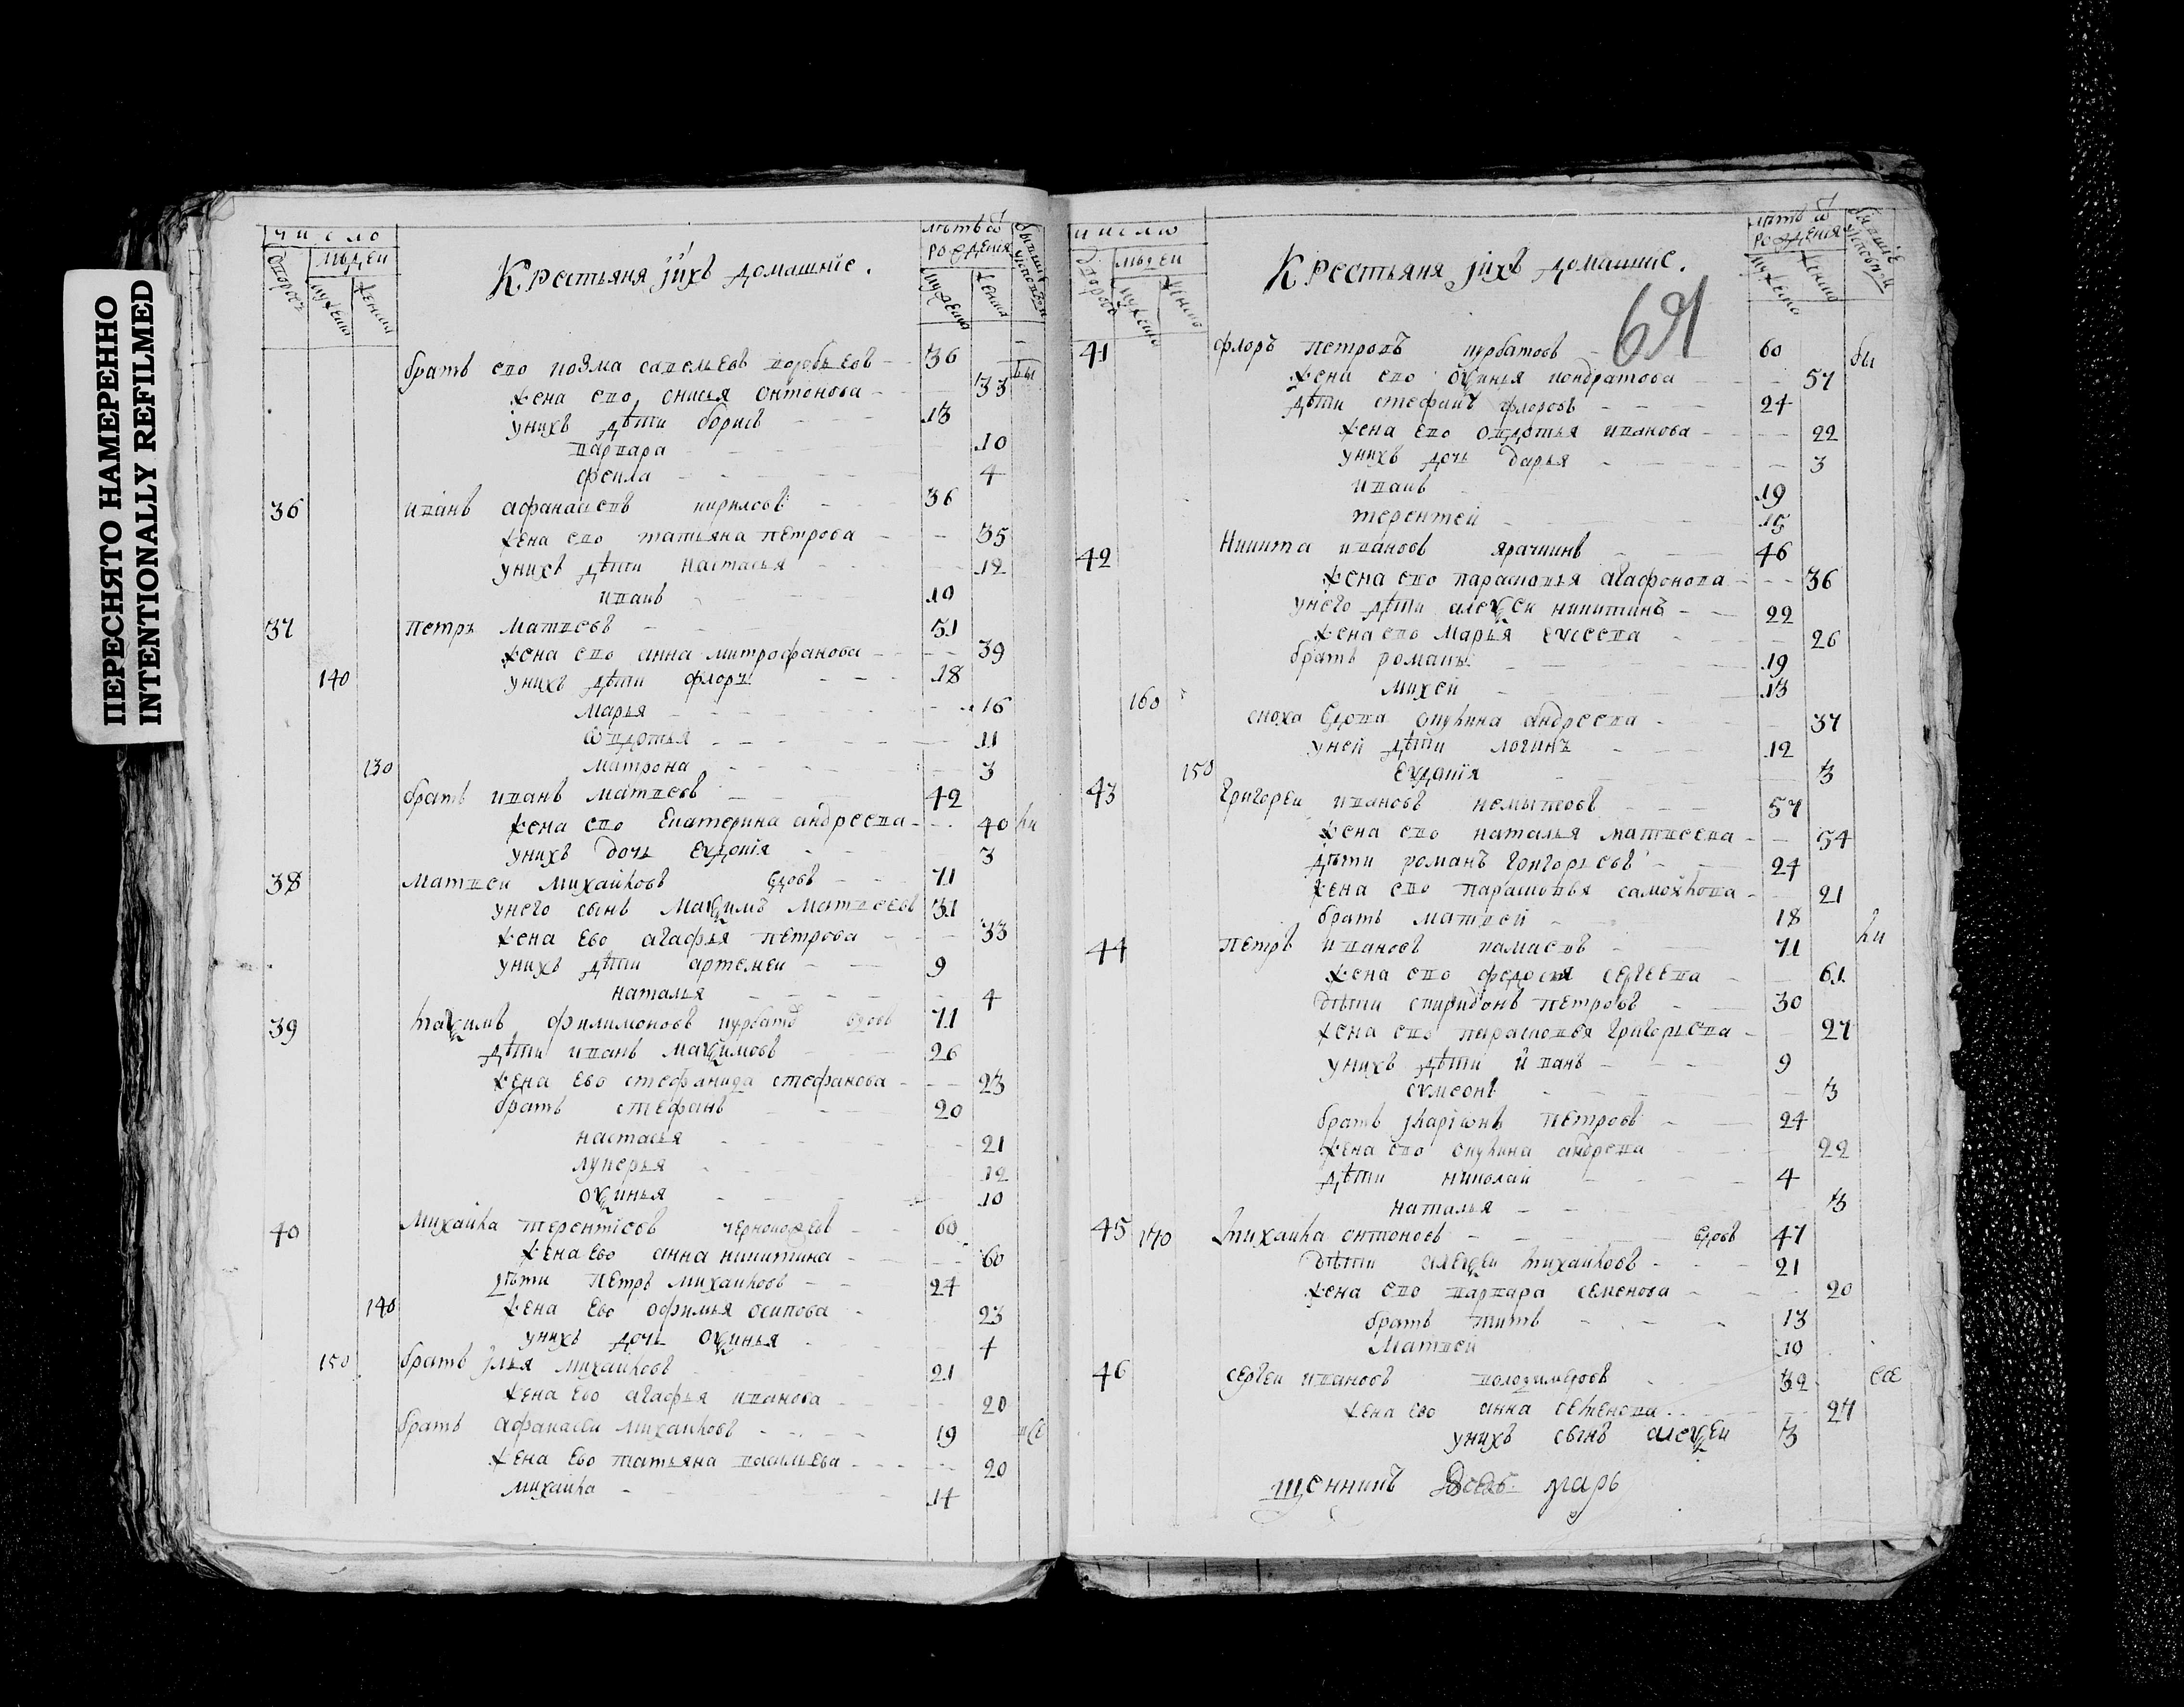 ПЕРЕСНЯТО НАМЕРЕННО
INTENTIONALLY REFILMED
число
людей
Крестьяня ихъ домашніе.
лѣтъ ѿ рожденія
мужеска женска
братъ ево козма савельевъ воробьевъ 36
жена ево онисья онтонова 33
унихъ дѣти борисъ 13
варвара 10
фекла 4
36 иванъ афанасьевъ кириловъ 36
жена ево татьяна петрова 35
унихъ дѣти настасья 12
иванъ 10
37 петръ матвеевъ 51
жена ево анна митрофанова 39
140 унихъ дѣти флоръ 18
марья 16
ѡвдотья 11
130 матрона 3
братъ иванъ матвеевъ 42
жена ево екатерина андреева 40
унихъ дочь евдокія 3
38 матвеи михайловъ вдовъ 71
унего сынъ маѯимъ матвеевъ 31
жена ево агафья петрова 33
унихъ дѣти артемеи 9
наталья 4
39 маѯимъ филимоновъ курбатовъ вдовъ 71
дѣти иванъ маѯимовъ 26
жена ево стефанида стефанова 23
братъ стефанъ 20
настасья 21
лукерья 12
оѯинья 10
40 михайла терентіевъ 60
жена ево анна никитина 60
дѣти петръ михайловъ 24
140 жена ево офимья осипова 23
унихъ дочь оѯинья 4
150 братъ илья михайловъ 21
жена ево агафья иванова 20
братъ афанасеи михайловъ 19
жена ево татьяна васильева 20
михайла 14
число
людей
Крестьяня ихъ домашніе.
лѣтъ ѿ рожденія
мужеска женска
69
41 флоръ петровъ курбатовъ 60 бы
жена ево оѯинья кондратова 57
дѣти стефанъ флоровъ 24
жена ево овдотья иванова 22
унихъ дочь дарья 3
иванъ 19
терентей 15
42 никита ивановъ 46
жена ево парасковья агафонова 36
унего дѣти алеѯеи никитинъ 22
жена ево марья 26
братъ романъ 19
160 михей 13
сноха вдова акулина андреева 37
уней дѣти логинъ 12
150 евдокія 3
43 григореи ивановъ 57
жена ево наталья матвеева 54
дѣти романъ григорьевъ 24
жена ево парасковья самойлова 21
братъ матвей 18
44 петръ ивановъ 71 ли
жена ево федосья сергеева 61
дѣти спиридонъ петровъ 30
жена ево парасковья григорьева 27
унихъ дѣти иванъ 9
сѵмеонъ 3
братъ иларіѡнъ петровъ 24
жена ево окулина андреева 22
дѣти николай 4
наталья 3
45 170 михайла онтоновъ вдовъ 47
дѣти алеѯеи михайловъ 21
жена ево варвара семенова 20
братъ титъ 13
матвей 10
46 сергеи ивановъ володимеровъ 32 все
жена ево анна семенова 27
унихъ сынъ алеѯеи 3
щенникъ